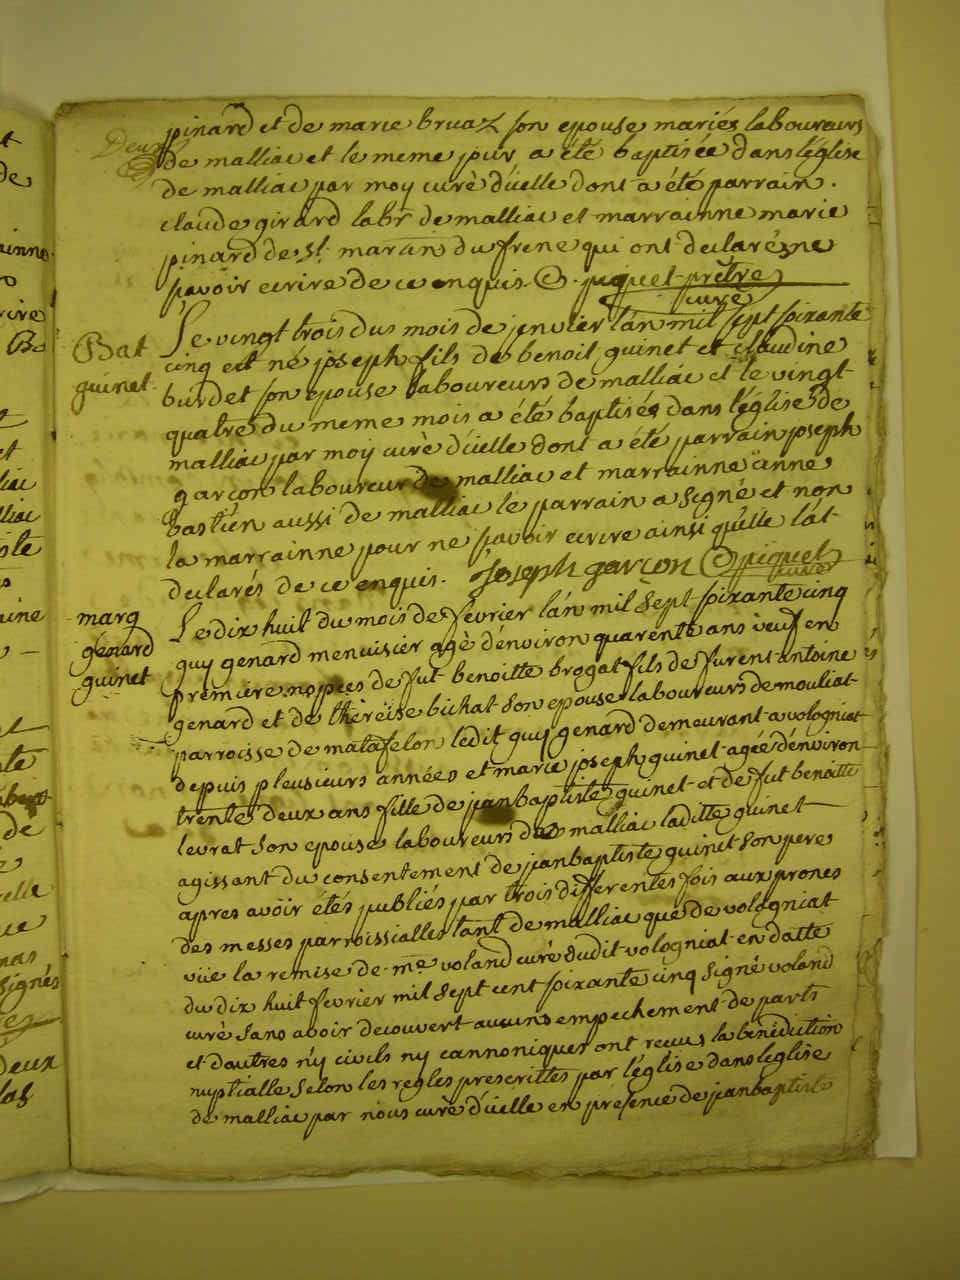 Deux
pinard et de marie bruaz son epouse mariés laboureurs
de malliac et le meme jour a été baptisée dans léglise
de malliac par moy curè d'icelle dont a été parrain.
claude girard labr de malliac et marrainne marie
pinard de St. martin du frene qui ont declarés ne
savoir ecrire de ce enquis. piquet prêtre
curé
Bat
guinet
Le vingt trois dus mois de jenvier lán mil sept soixante
cinq est né joseph fils de benoit guinet et claudine
burdet son epouse laboureurs de malliac et le vingt
quatre du meme mois a été baptisés dans l'église de
malliac par moy curè d'icelle dont a été parrain joseph
garçon laboureur de malliac et marrainne anne
bastien aussi de malliac le parrain a signé et non
la marrainne pour ne sçavoir ecrire ainsi qu'elle lát
declarés de ce enquis. Joseph garçon piquet
curé
marg
genard
guinet
Le dix huit du mois de fevrier lán mil sept soixante cinq
guy genard menuisier agè d'énviron quarente ans veuf en
premiere nopces de fut benoitte brogat fils de furent antoine
genard et de thèreise bichat son epouse laboureurs de mouliat
parroisse de matafelon ledit guy genard demeurant a vologniat
depuis pleusieurs années et marie joseph guinet agée d'énviron
trente deux ans fille de janbaptiste guinet et de fut benoitte
levrat son epouse laboureurs de malliac laditte guinet
agissant du consentement de janbaptiste guinet son pere
apres avoir étés publiés par trois differentes fois aux prones
des messes parroissialles tant de malliac que de vologniat
vüe la remise de me voland curè dudit vologniat en datte
du dix huit fevrier mil sept cent soixante cinq signé voland
curè sans avoir decouvert aucuns empechement de parts
et dautres n'y civils ny cannoniques ont recus la bénèdiction
nuptialle selon les regles prescrittes par l'église dans leglise
de malliac par nous curè d'icelle en présence de janbaptiste